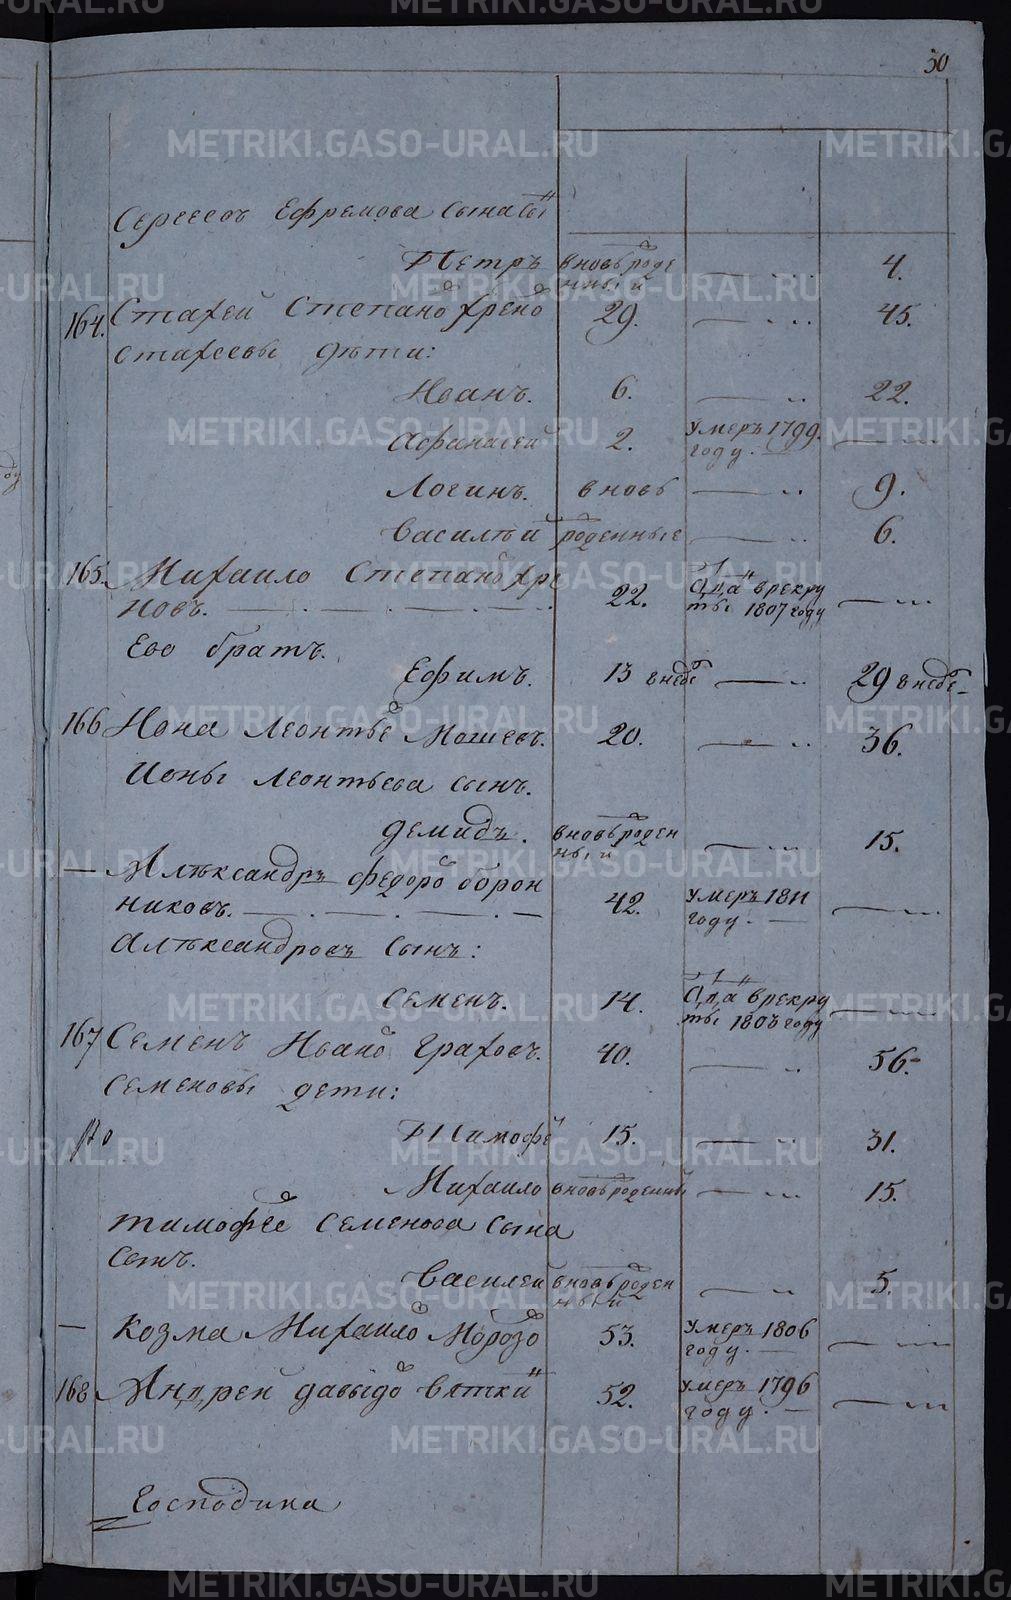 30
Сергеевъ Ефремова сына сы
Петръ вновьроде нный 4.
164. Стахей Степанов Хренов 29. 45.
Стахеевы дѣти:
Иванъ. 6. 22.
Афанасей 2. умеръ 1799. году.
Логинъ. вновь 9.
Василий роденные 6.
165. Михаило Степанов Хре 22. Отда въ рекру
новъ. ты 1807 году
Его братъ.
Ефимъ. 13 внебе 29 внебе
166 Иона Леонтьев Мошевъ. 20. 36.
Ионы Леонтьева сынъ.
Демидъ. вновьроден ный 15.
Алѣксандръ Федоров Оброн
никовъ. 42. умеръ 1811 году.
Алѣксандровъ сынъ:
Семенъ. 14. Отда въ рекру ты 1808 году
167 Семенъ Иванов Граховъ. 40. 56.
Семеновы дети:
Тимофей 15. 31.
Михаило вновьроденный 15.
Тимофея Семенова сына
сынъ.
Василей вновьроден ный 5.
Козма Михаилов Морозов 53. умеръ 1806 году.
168 Андрей Давыдов Вяткин 52. умеръ 1796 году.
Господина
METRIKI.GASO-URAL.RU